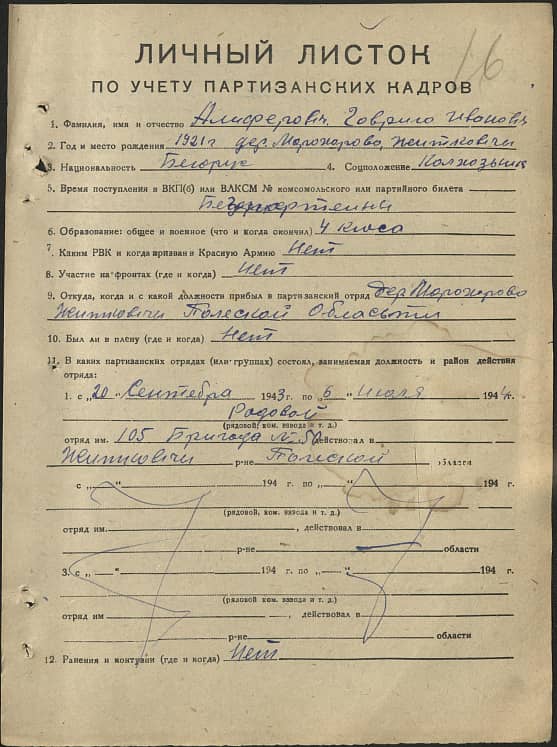 ЛИЧНЫЙ ЛИСТОК
16
ПО УЧЕТУ ПАРТИЗАНСКИХ КАДРОВ
1. Фамилия, имя и отчество Алиферович Говрило Иванович
2. Год и место рождения 1921г дер. Морохорово, Житковичи
3. Национальность Белорус 4. Соцположение Колхозник
5. Время поступления в ВКП(б) или ВЛКСМ № комсомольского или партийного билета
6. Образование: общее и военное (что и когда окончил) 4 класа
7. Каким РВК и когда призван в Красную Армию Нет
8. Участие на фронтах (где и когда) Нет
9. Откуда, когда и с какой должности прибыл в партизанский отряд дер Морохорово
Житковичи Полеской Обласьти
10. Был ли в плену (где и когда) Нет
11. В каких партизанских отрядах (или группах) состоял, занимаемая должность и район действия
отряда:
1. с „20" Сентебра 1943г. по „6" июля 1944г.
Радовой
(рядовой, ком. взвода и т. д.)
отряд им. 105 Бригада № 50 действовал в
Житковичи р-не Полеской области
с „ " 194 г. по „ " 194 г.
(рядовой, ком. взвода и т. д.)
отряд им. , действовал в
р-не области
3. с „ " 194 г. по „ " 194 г.
(рядовой ком. взвода и т. д.)
отряд им , действовал в
р-не области
12. Ранения и контузии (где и когда) Нет